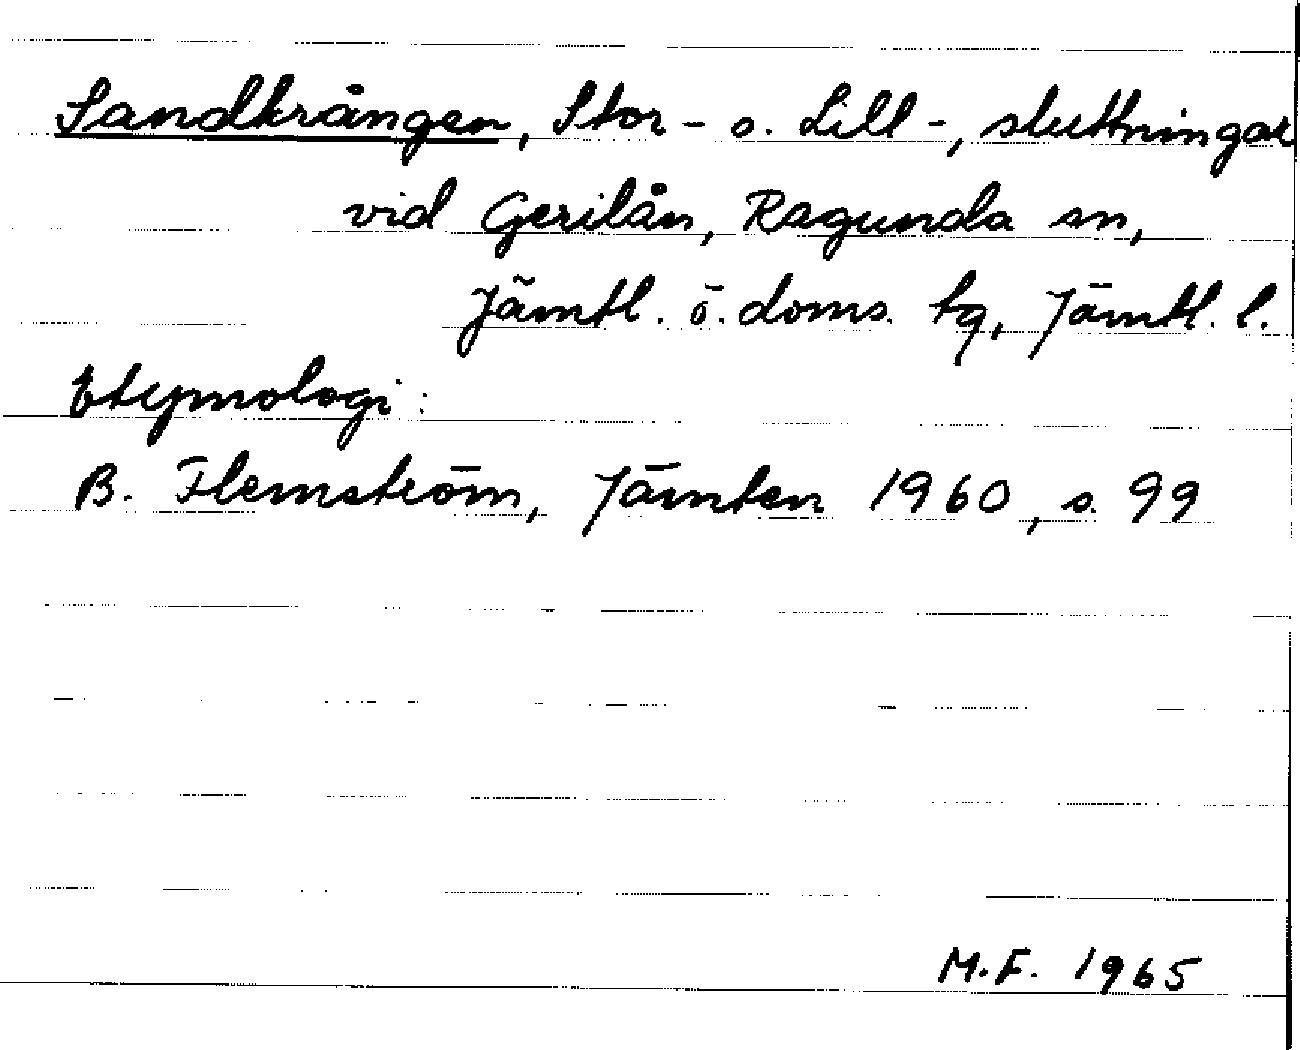 Sandkrången, Stor- o. Lill-, sluttningar
vid Gerilån, Ragunda sn,
Jämtl. ö. doms. tg, Jämtl. l.
Etymologi:
B. Flemström, Jämten 1960, s. 99
M.F. 1965